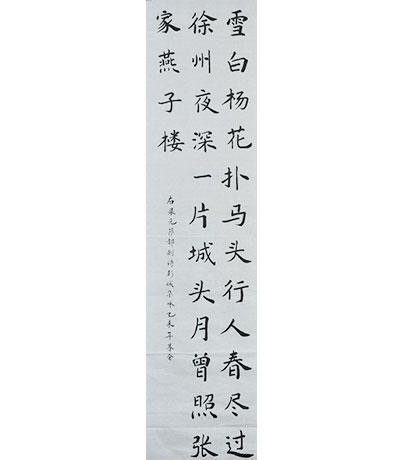 雪白杨花扑马头行人春尽过
徐州夜深一片城头月曾照张
家燕子楼
右录元萨都剌诗彭城杂咏乙未年